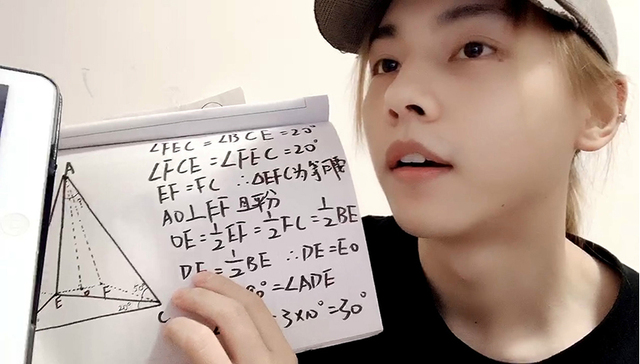 ∠FEC=∠BCE=20°
∠FCE=∠FEC=20°
EF=FC ∴△EFC为等腰
AO⊥EF 且平分
OE=½EF=½FC=½BE
DE=½BE ∴DE=EO
0°=∠ADE
3×10°=30°
A
E
F
50°
20°